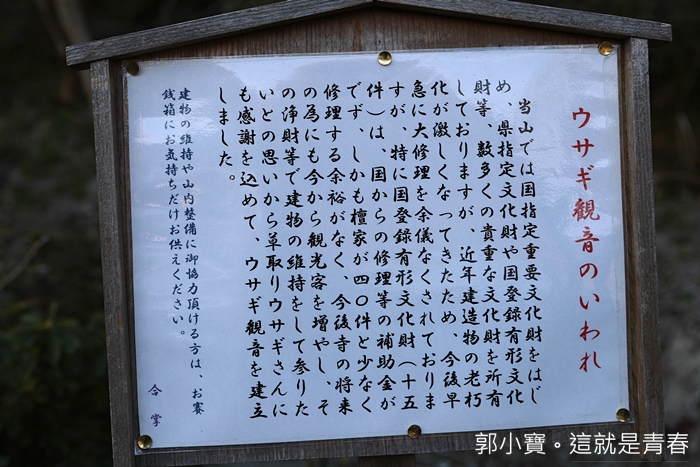 ウサギ観音のいわれ
当山では国指定重要文化財をはじ
め、県指定文化財や国登録有形文化
財等、数多くの貴重な文化財を所有
しておりますが、近年建造物の老朽
化が激しくなってきたため、今後早
急に大修理を余儀なくされておりま
すが、特に国登録有形文化財(十五
件)は、国からの修理等の補助金が
でず、しかも檀家が四〇件と少なく
修理する余裕がなく、今後寺の将来
の為にも今から観光客を増やし、そ
の浄財等で建物の維持をして参りた
いとの思いから草取りウサギさんに
も感謝を込めて、ウサギ観音を建立
しました。
建物の維持や山内整備に御協力頂ける方は、お賽
銭箱にお気持ちだけお供えください。
合掌
郭小寶。這就是青春